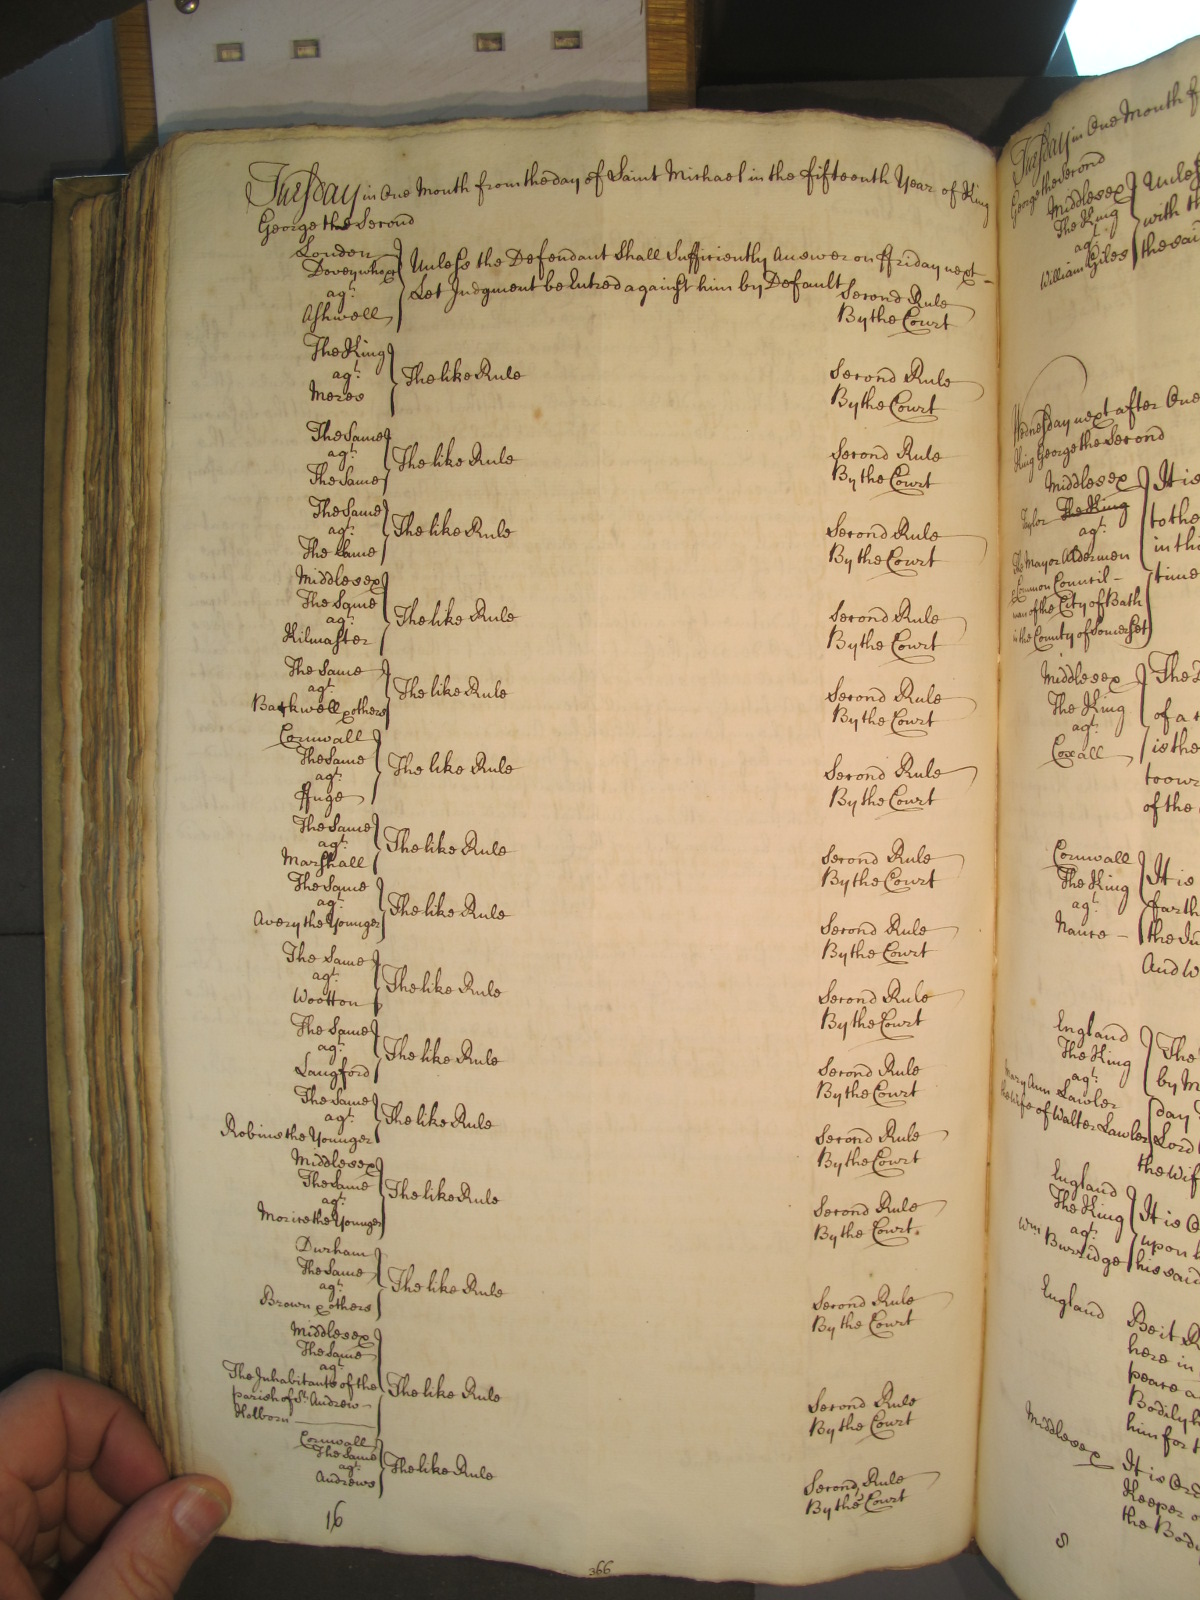 Tuesday in One Month from the day of Saint Michael in the fifteenth Year of King
George the Second
London
Unless the Defendant Shall Sufficiently Answer on ffriday next
agt.
Let Judgment be Entred against him by Default
Second Rule
Ashwell
By the Court
The King
agt.
The like Rule
Second Rule
Meres
By the Court
The Same
agt.
The like Rule
Second Rule
The Same
By the Court
The Same
agt.
The like Rule
Second Rule
The Same
By the Court
Middlesex
The Same
agt.
The like Rule
Second Rule
Kilmaster
By the Court
The Same
agt.
The like Rule
Second Rule
Barkwell & others
By the Court
Cornwall
The Same
agt.
The like Rule
Second Rule
ffuge
By the Court
The Same
agt.
The like Rule
Second Rule
Marshall
By the Court
The Same
agt.
The like Rule
Second Rule
Avery the Younger
By the Court
The Same
agt.
The like Rule
Second Rule
Wootton
By the Court
The Same
agt.
The like Rule
Second Rule
Langford
By the Court
The Same
agt.
The like Rule
Second Rule
Robins the Younger
By the Court
Middlesex
The Same
agt.
The like Rule
Second Rule
Morice the Younger
By the Court.
Durham
The Same
agt.
The like Rule
Second Rule
Brown & others
By the Court
Middlesex
The Same
agt.
The Inhabitants of the
The like Rule
parish of St. Andrew
Second Rule
Holborn
By the Court
Cornwall
The Same
agt.
The like Rule
Second Rule
Andrews
By the Court
16
366
Tuesday in One Month
George the Second
Middlesex
Unless
The King
with th
agt.
the said
William Giles
Wednesday next after One
King George the Second
Middlesex
It is
Taylor The King
to the
agt.
in thi
The Mayor Aldermen
time
& Common Council
men of the City of Bath
in the County of Somerset
Middlesex
The
The King
of a
agt.
is the
Coxall
of the
Cornwall
It is
The King
farth
agt.
Nance
And W
England
The
The King
by M
agt.
Mary Ann Lawler
day
the Wife of Walter Lawler
Lord
the Wif
England
It is O
The King
upon
agt.
his said
Wm Burridge
England
Be it R
here in
peace a
Bodily h
him for
Middlesex
It is Ord
Keeper o
the Body
S